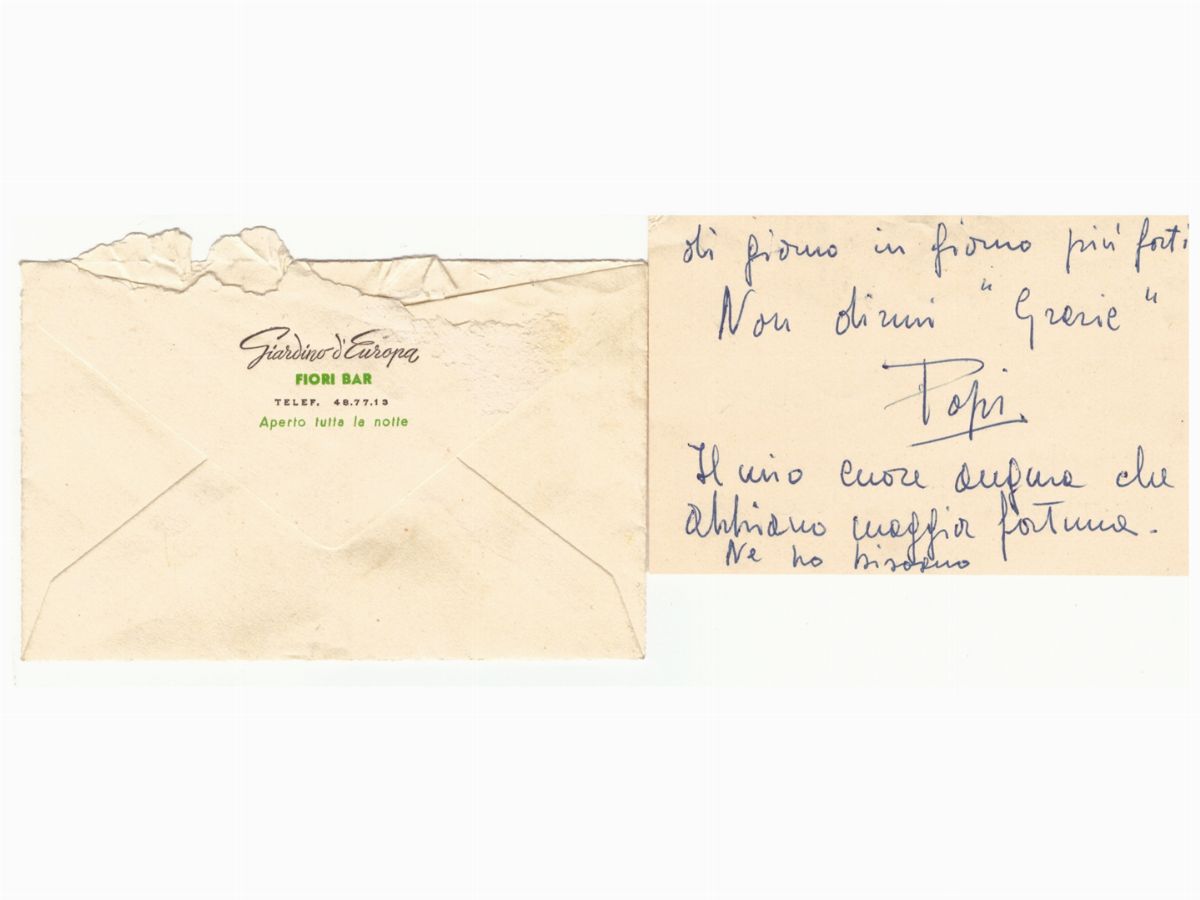 Giardino d'Europa
FIORI BAR
TELEF. 48.77.13
Aperto tutta la notte
di giorno in giorno più forti
Non dirmi "Grazie"
Popi.
Il mio cuore augura che
abbiamo maggior fortuna.
Ne ho bisogno